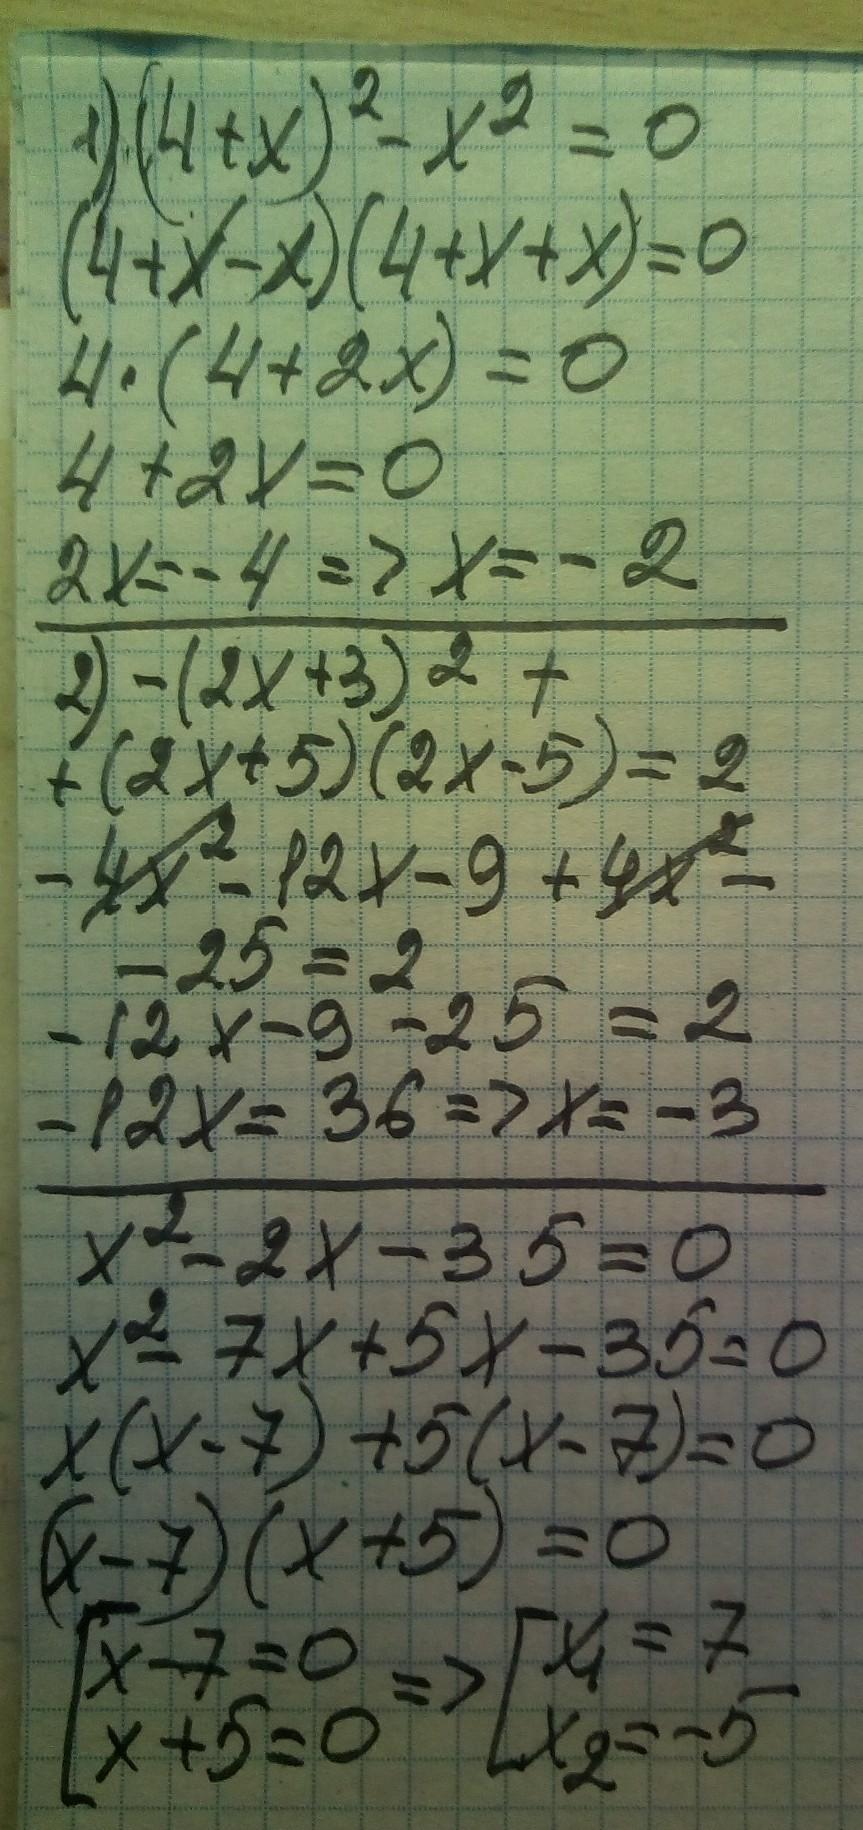 1) (4+x)² - x² = 0
(4+x-x)(4+x+x)=0
4·(4+2x) = 0
4+2x=0
2x=-4 => x=-2
2) -(2x+3)² +
+(2x+5)(2x-5)=2
-4x²-12x-9+4x²-
-25=2
-12x-9-25=2
-12x=36=>x=-3
x²-2x-35=0
x²-7x+5x-35=0
x(x-7)+5(x-7)=0
(x-7)(x+5)=0
[x-7=0 => [x₁=7
x+5=0 x₂=-5